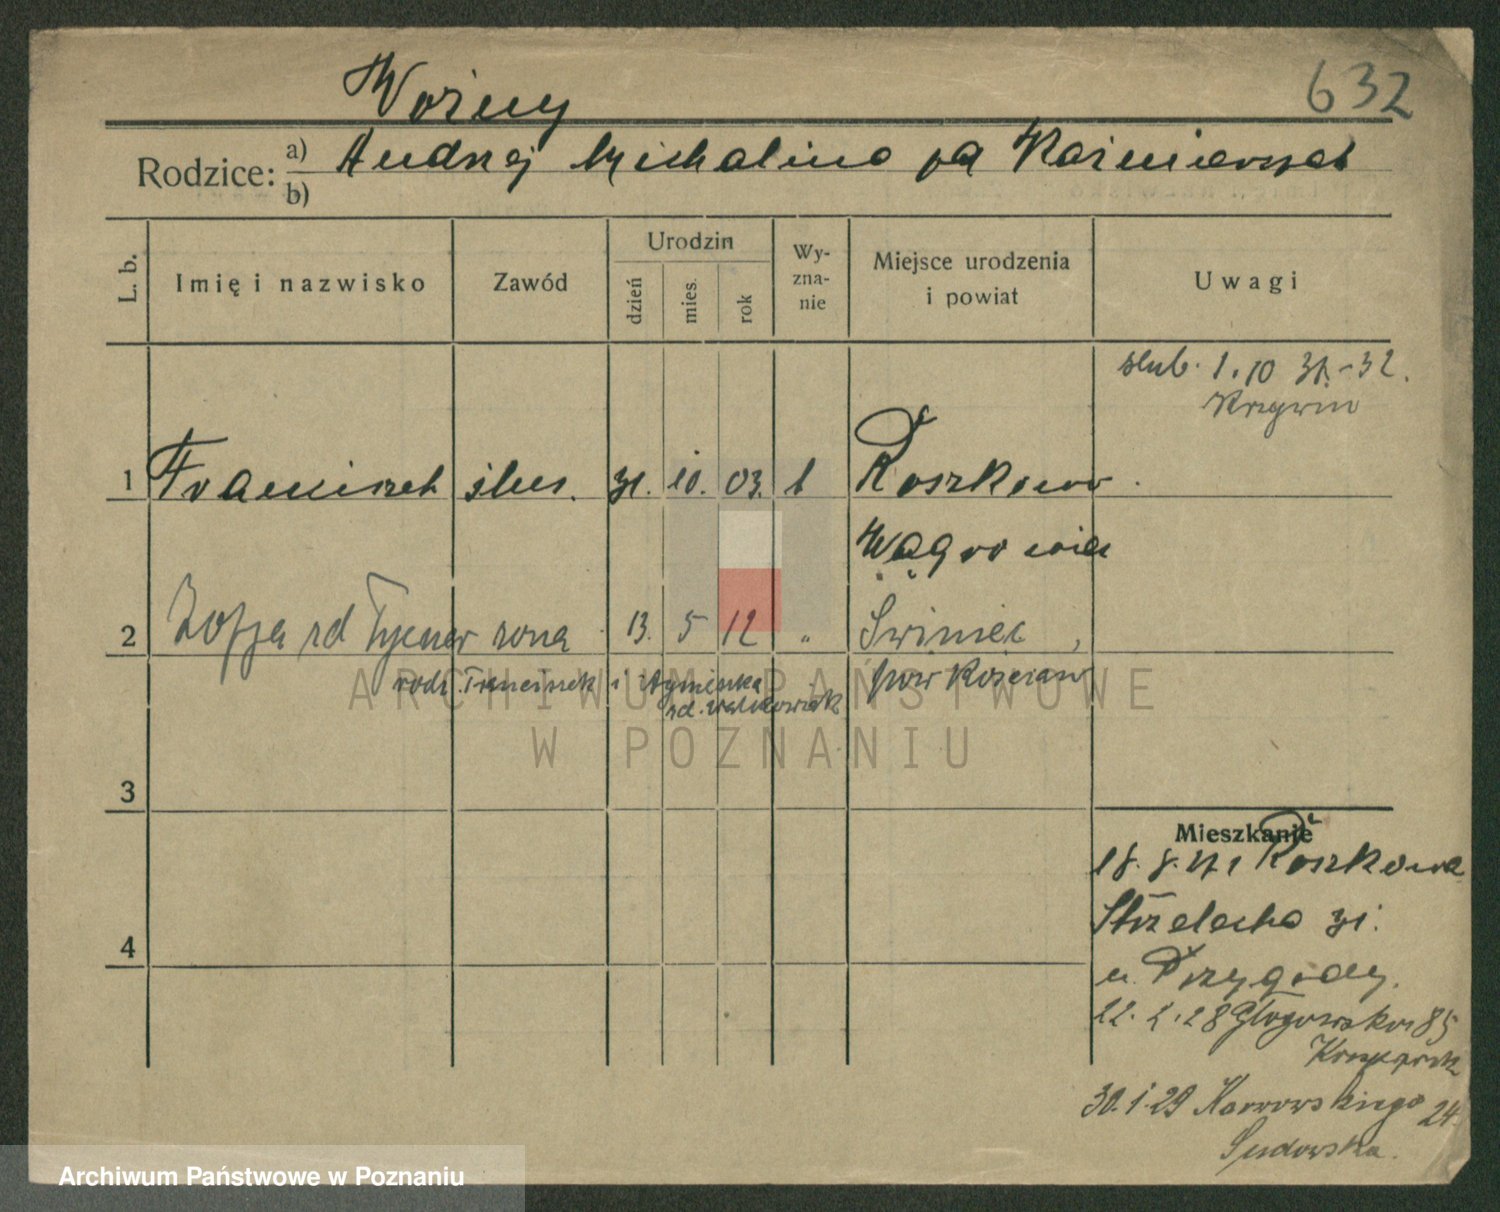 632
Woźny
Rodzice: a) Andrzej Michalina zd Kaźmierczak
b)
L. b. Imię i nazwisko Zawód Urodzin dzień mies. rok Wy-zna-nie Miejsce urodzenia i powiat Uwagi
ślub. 1.10 31.-32.
Krzywin
1 Franciszek ślus. 31. 10. 03. k Roszkowo.
Wągrowiec
2 Zofja zd Tycner żona 13. 5 12 " Świniec,
rodz. Franciszek i Agnieszka pow Kościan
zd. Walkowiak
ARCHIWUM PAŃSTWOWE
W POZNANIU
3
Mieszkanie
18. 8. 27 z Roszkowa
Strzelecka 31.
u. Przygody.
22. 2. 28 Głogowska 85
4
30.1.29 Karwowskiego 24.
Sudowska.
Archiwum Państwowe w Poznaniu